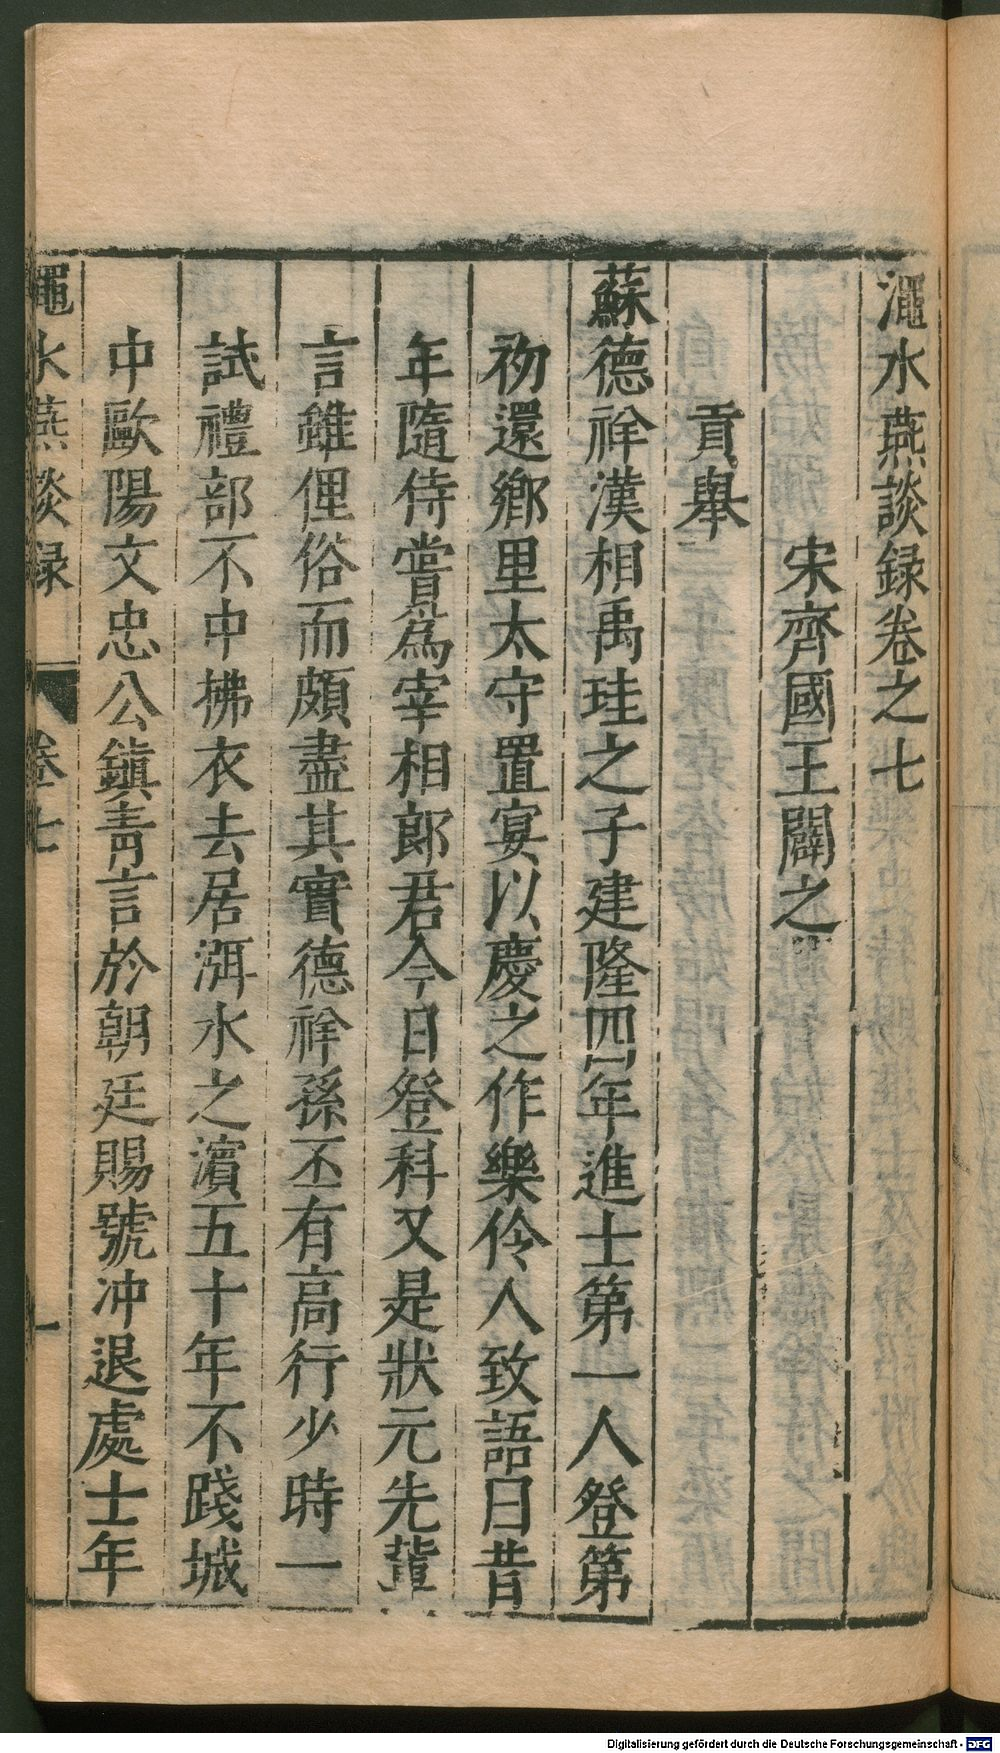 澠水燕談録卷之七
宋齊國王闢之
貢舉
蘇德祥漢相禹珪之子建隆四年進士第一人登第
初還鄉里太守置宴以慶之作樂伶人致語曰昔
年隨侍嘗爲宰相郎君今日登科又是狀元先輩
言雖俚俗而頗盡其實德祥孫丕有高行少時一
試禮部不中拂衣去居洱水之濵五十年不踐城
中歐陽文忠公鎮青言於朝廷賜號冲退處士年
澠水燕談録 卷七 一
Digitalisierung gefördert durch die Deutsche Forschungsgemeinschaft - DFG